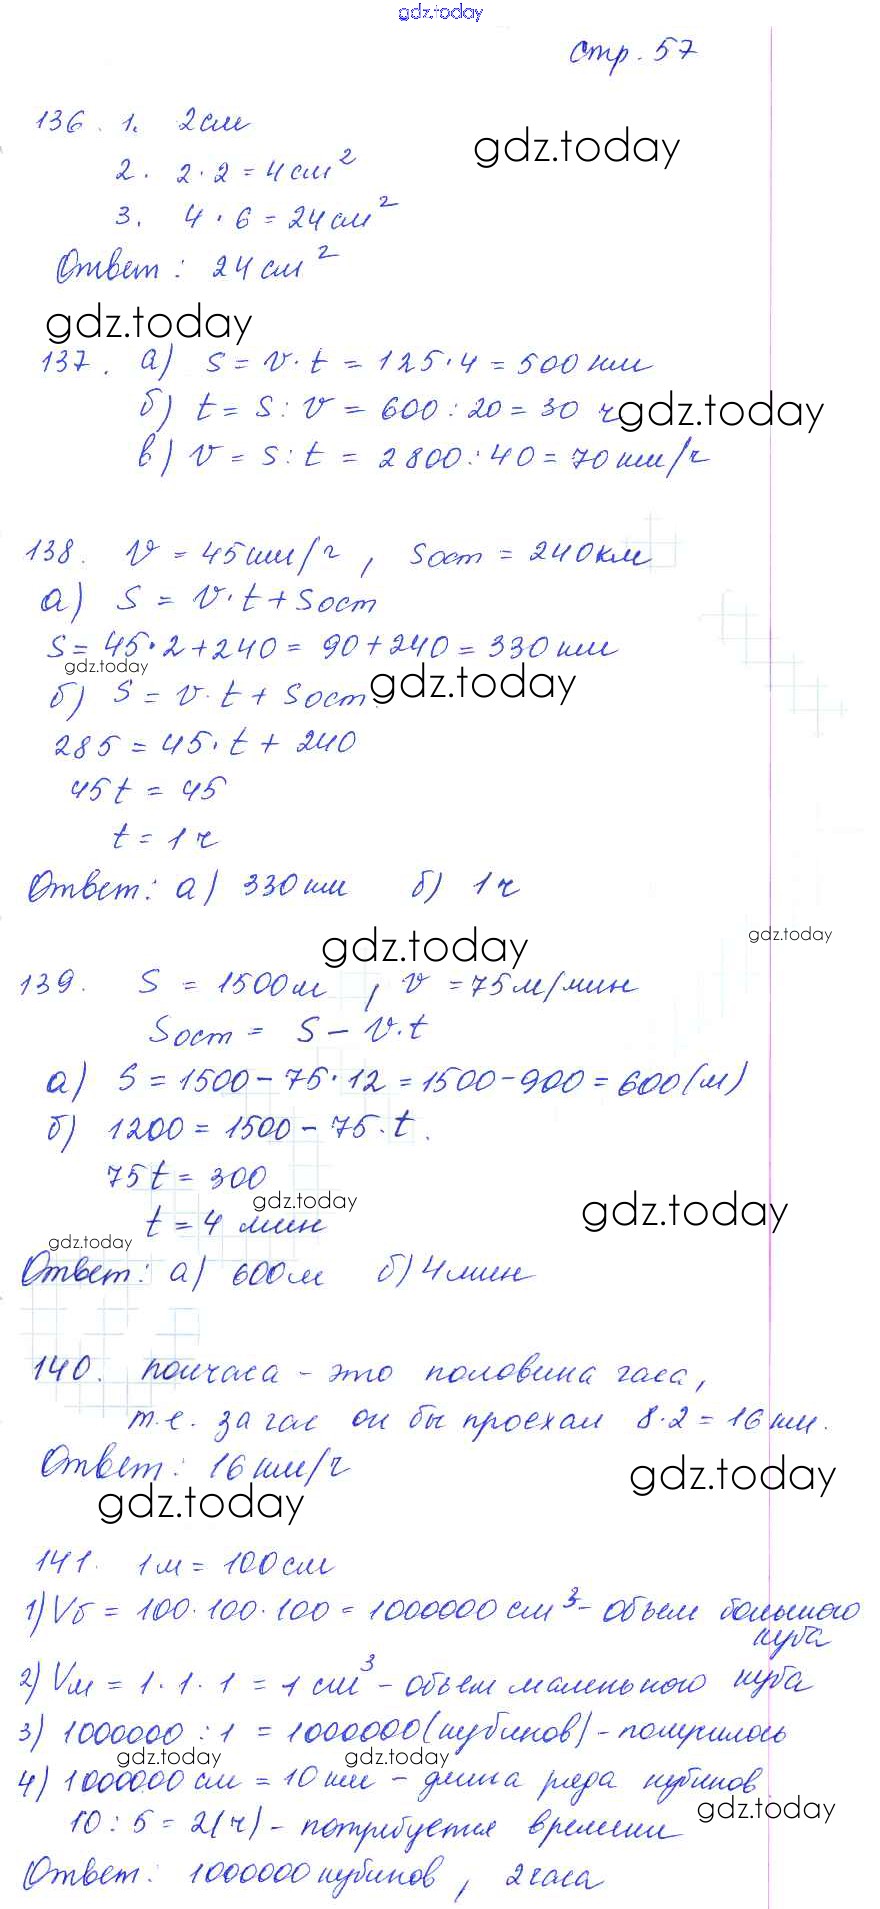 gdz.today
стр. 57
136. 1. 2см
gdz.today
2. 2·2=4см²
3. 4·6=24см²
Ответ: 24см²
gdz.today
137. а) S = v·t = 125·4 = 500км
б) t = S:v = 600:20 = 30 ч
gdz.today
в) v = S:t = 2800:40 = 70км/ч
138. v = 45км/ч, Sост = 240км
а) S = v·t + Sост
S = 45·2+240 = 90+240 = 330км
gdz.today
б) S = v·t + Sост
gdz.today
285 = 45·t + 240
45t = 45
t = 1ч
Ответ: а) 330км б) 1ч
gdz.today
gdz.today
139. S = 1500м, v = 75м/мин
Sост = S - v·t
а) S = 1500 - 75·12 = 1500-900 = 600(м)
б) 1200 = 1500 - 75·t.
75t = 300
gdz.today
t = 4 мин
gdz.today
gdz.today
Ответ: а) 600м б) 4мин
140. Полчаса - это половина часа,
т.е. за час он бы проехал 8·2=16км.
Ответ: 16км/ч
gdz.today
gdz.today
141. 1м = 100см
1) Vб = 100·100·100 = 1000000см³ - объем большого
куба
2) Vм = 1·1·1 = 1см³ - объем маленького куба
3) 1000000:1 = 1000000(кубиков) - получилось
gdz.today
gdz.today
4) 1000000см = 10км - длина ряда кубиков
gdz.today
10:5 = 2(ч) - потребуется времени
Ответ: 1000000кубиков, 2часа